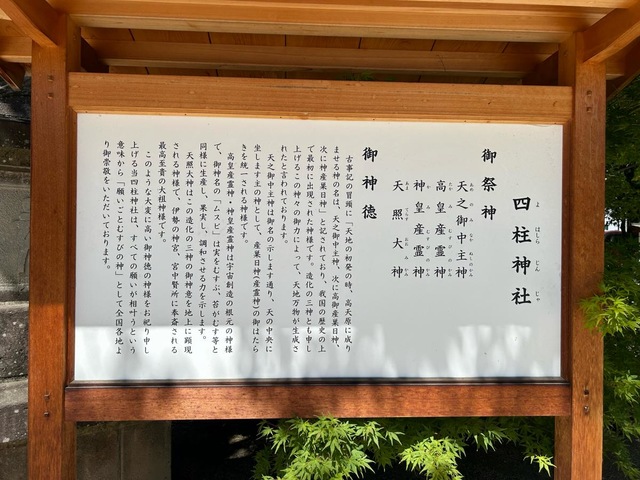 四柱神社
よ はしら じん じゃ
御祭神
天之御中主神
高皇産霊神
神皇産霊神
天照大神
御神徳
古事記の冒頭に「天地の初発の時、高天原に成り
ませる神の名は、天之御中主神、次に高御産巣日神、
次に神産巣日神」と記されており、我国の歴史の上
で最初に出現された神様です。造化の三神とも申し
上げるこの神々の御力によって、天地万物が生成さ
れたと言われております。
天之御中主神は御名の示します通り、天の中央に
坐します主の神として、産巣日神（産霊神）の御はたら
きを統一される神様です。
高皇産霊神・神皇産霊神は宇宙創造の根元の神様
で、御神名の「ムスビ」は実をむすぶ、苔がむす等と
同様に生産し、果実し、調和させる力を示します。
天照大神はこの造化の三神の御神意を地上に顕現
される神様で、伊勢の神宮、宮中賢所に奉斎される
最高至貴の大祖神様です。
このような大変に高い御神徳の神様をお祀り申し
上げる当四柱神社は、すべての願いが相叶うという
意味から「願いごとむすびの神」として全国各地よ
り御崇敬をいただいております。